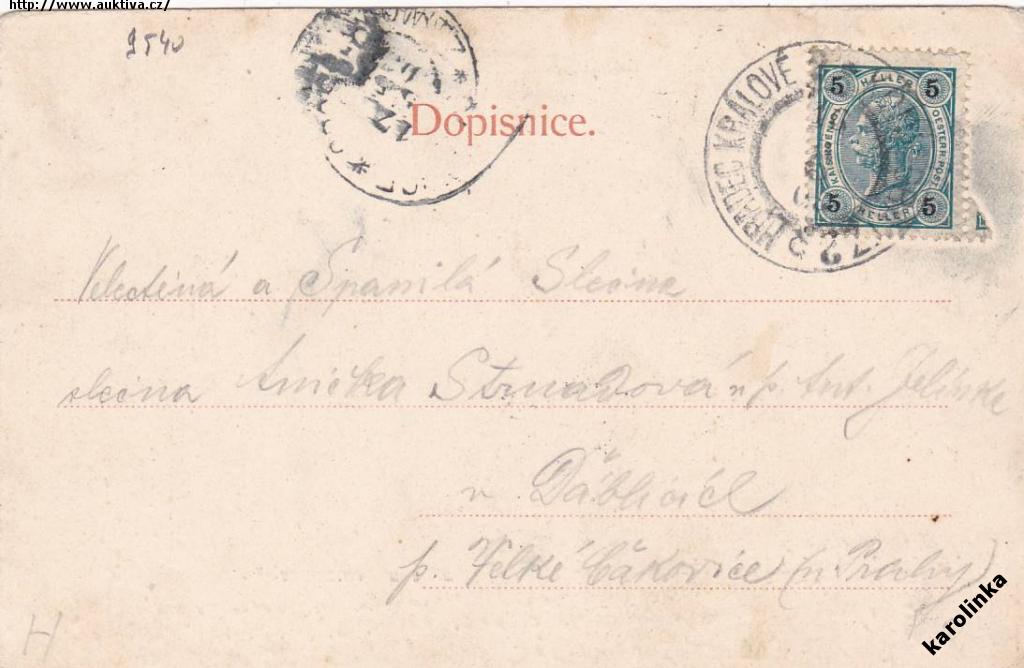 http://www.auktiva.cz/
9540
Dopisnice.
HRADEC KRÁLOVÉ
5 HELLER 5
KAIS. KÖNIGL. OESTERR. POST
5 HELLER 5
Velectěná a Spanilá Slečna
slečna Anička Strnadová u p. Ant. Jelínka
v Ďáblicích
p. Velké Čákovice (u Prahy)
H
karolinka